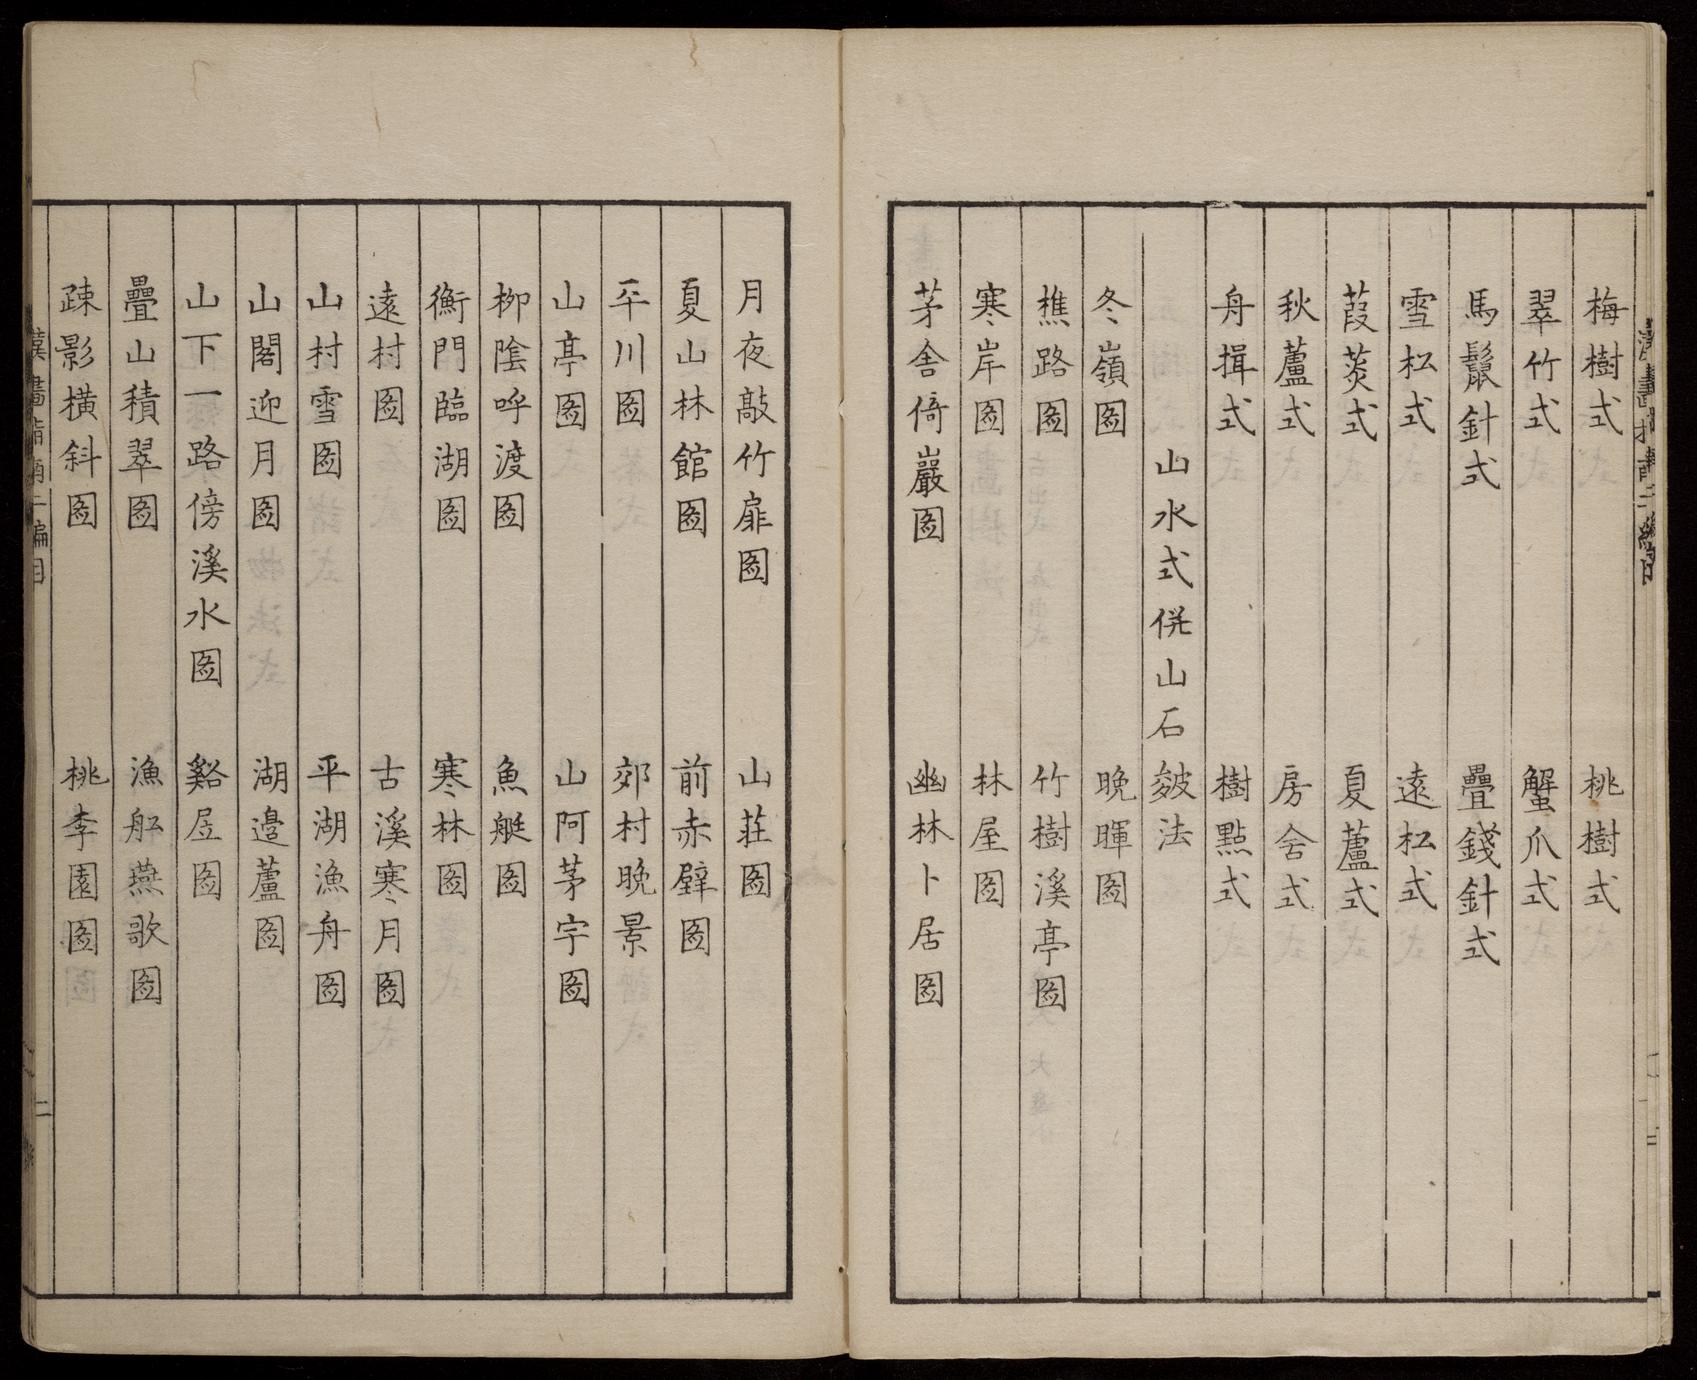 梅樹式 桃樹式
翠竹式 蟹爪式
馬鬣針式 疊錢針式
雪松式 遠松式
葭菼式 夏蘆式
秋蘆式 房舍式
舟揖式 樹點式
山水式併山石皴法
冬嶺圖 晚暉圖
樵路圖 竹樹溪亭圖
寒岸圖 林屋圖
茅舍倚巖圖 幽林卜居圖
月夜敲竹扉圖 山莊圖
夏山林館圖 前赤壁圖
平川圖 郊村晚景
山亭圖 山阿茅宇圖
柳陰呼渡圖 魚艇圖
衡門臨湖圖 寒林圖
遠村圖 古溪寒月圖
山村雪圖 平湖漁舟圖
山閣迎月圖 湖邊蘆圖
山下一路傍溪水圖 谿居圖
疊山積翠圖 漁船燕歌圖
疎影橫斜圖 桃李園圖
漢畫指南二編目 二